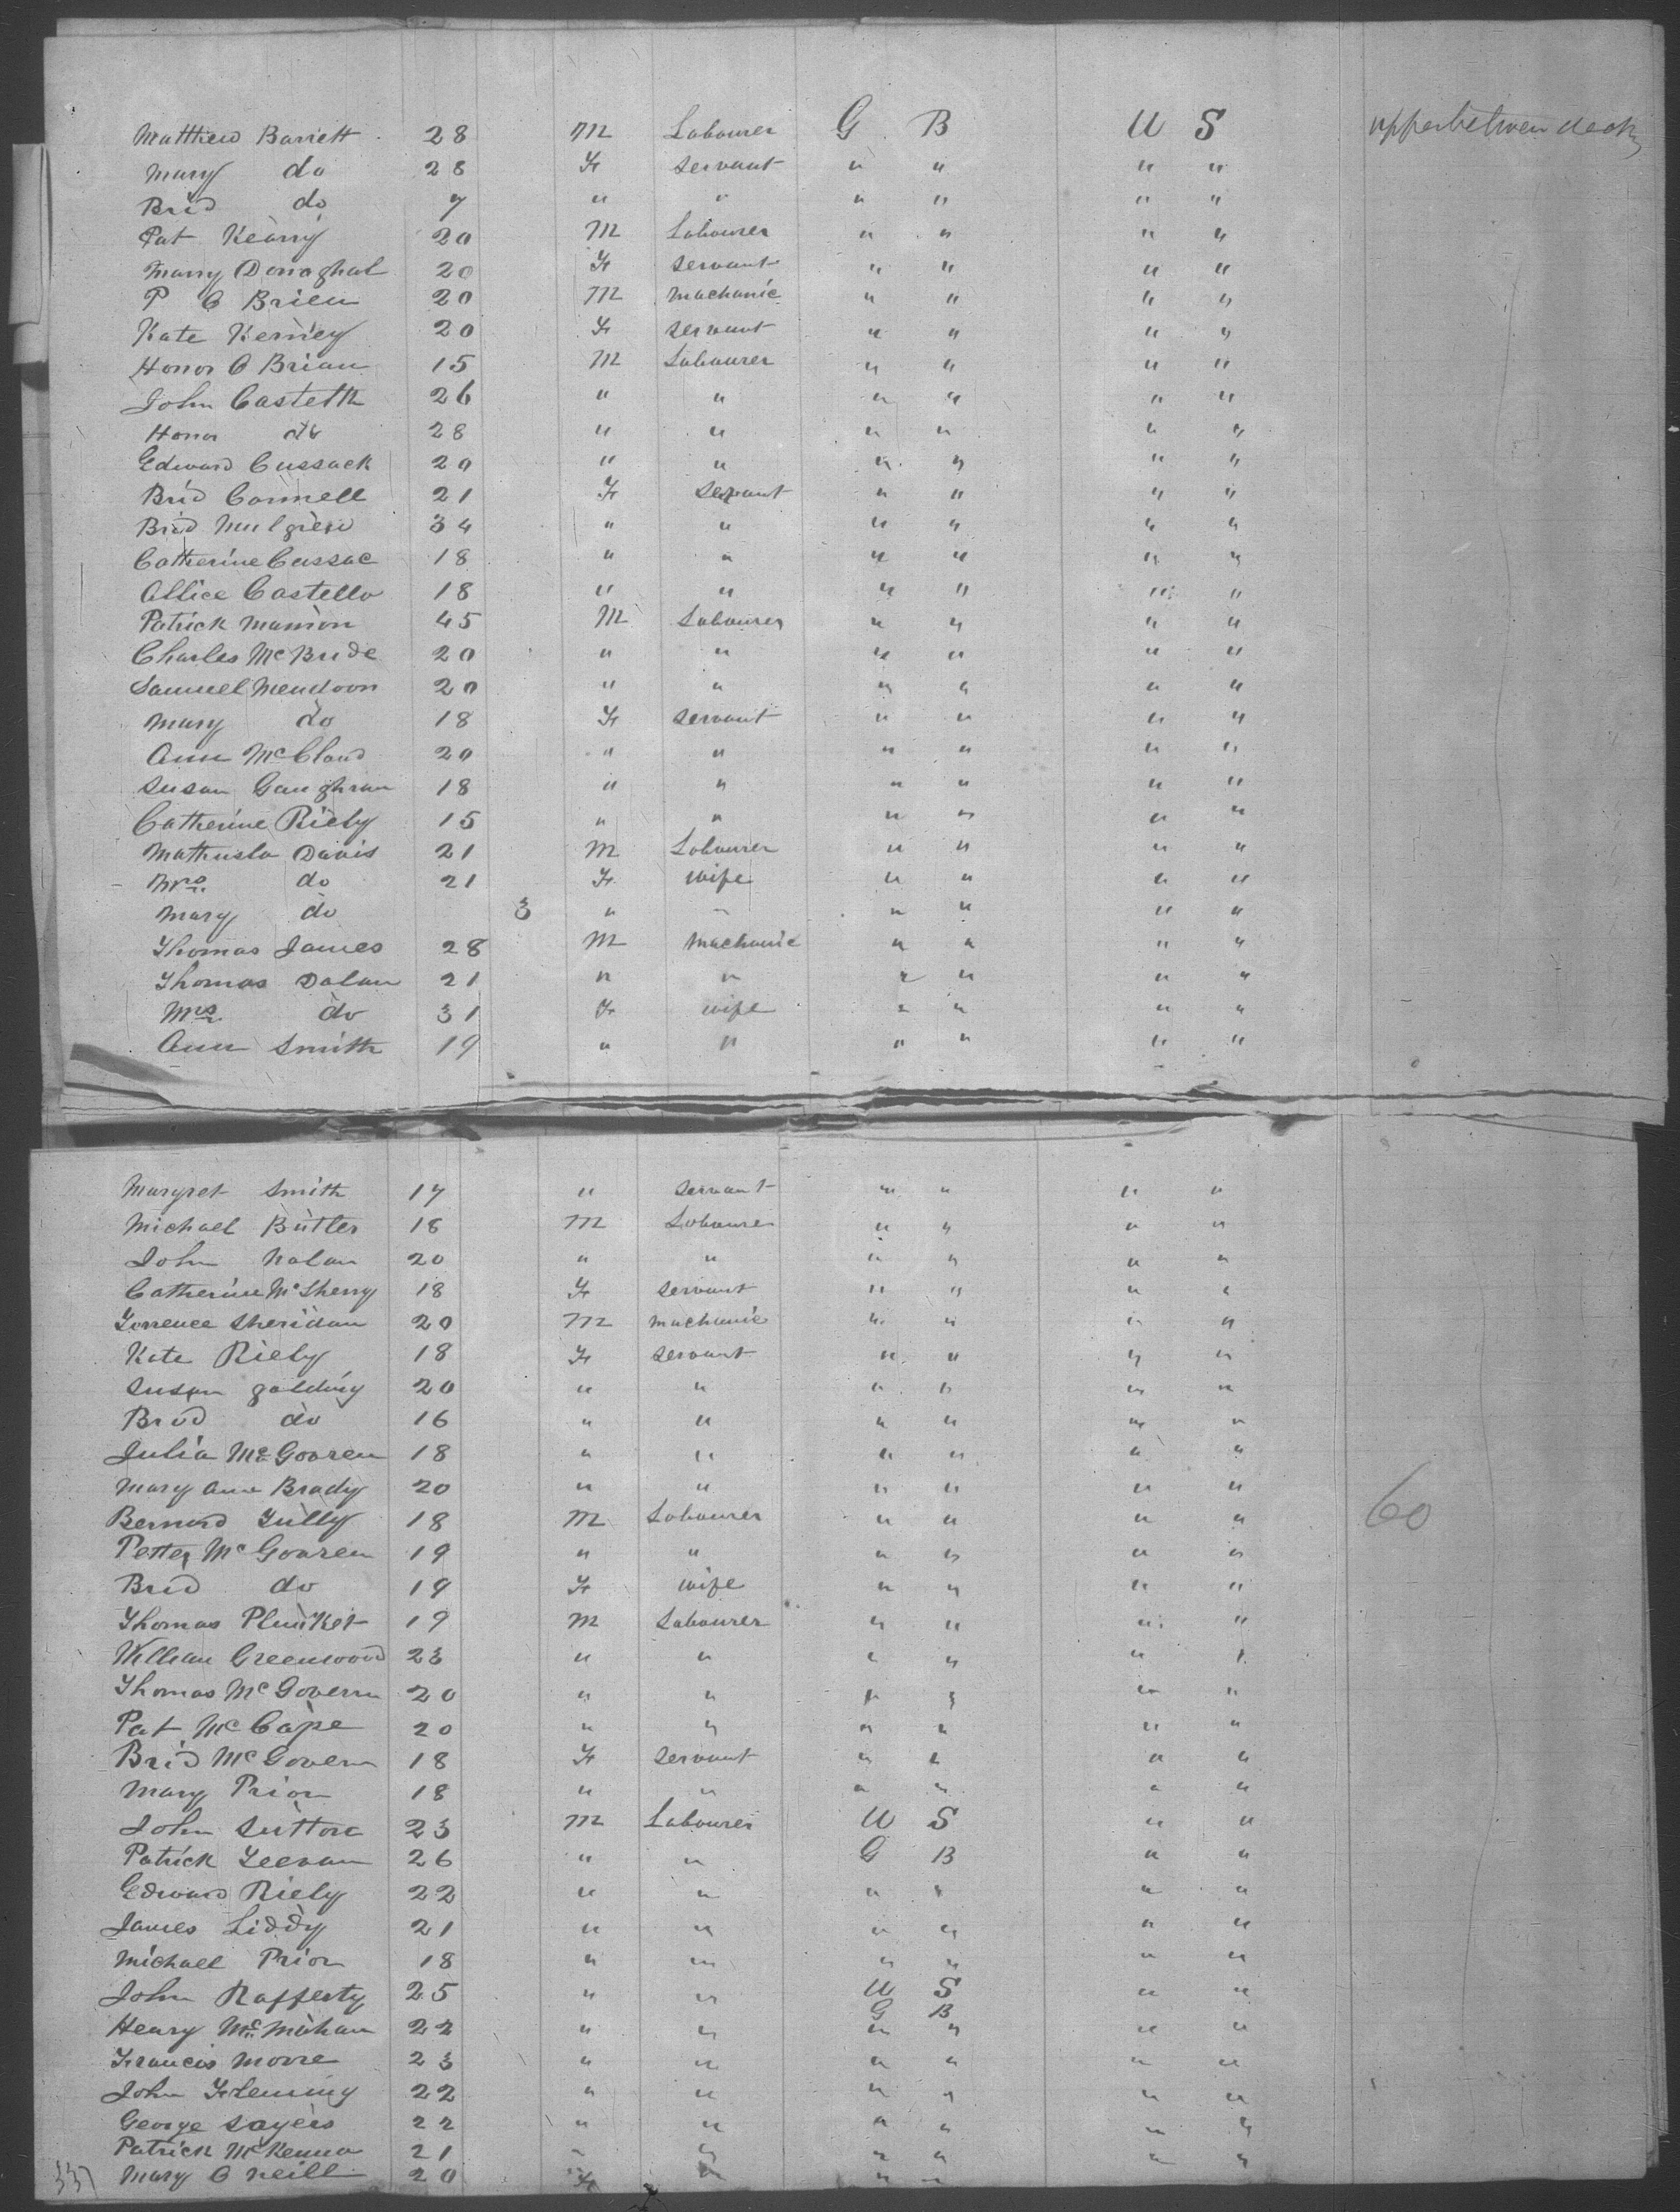 Matthew Barrett 28 M Labourer G B U S upper between decks
Mary do 28 F servant " " " "
Brid do 7 " " " " " "
Pat Kearny 20 M Labourer " " " "
Marry Donaghal 20 F servant " " " "
P O Brien 20 M machanic " " " "
Kate Kerney 20 F servant " " " "
Honor O Brian 15 M Labourer " " " "
John Casteth 26 " " " " " "
Honor do 28 " " " " " "
Edward Cussack 20 " " " " " "
Brid Connell 21 F servant " " " "
Brid Mulgrew 34 " " " " " "
Catherine Cussac 18 " " " " " "
Allice Costello 18 " " " " " "
Patrick Mannion 45 M Labourer " " " "
Charles McBride 20 " " " " " "
Samuel Mendoon 20 " " " " " "
Mary do 18 F servant " " " "
Ann McCland 20 " " " " " "
Susan Gaughran 18 " " " " " "
Catherine Riely 15 " " " " " "
Mathusla Davis 21 M Labourer " " " "
Mrs do 21 F wife " " " "
Mary do 3 " " " " " "
Thomas James 28 M machanic " " " "
Thomas Dolan 21 " " " " " "
Mrs do 31 F wife " " " "
Ann Smith 19 " " " " " "
Margret Smith 17 " servant " " " "
Michael Butler 18 M Labourer " " " "
John Nolan 20 " " " " " "
Catherine McSherry 18 F servant " " " "
Torrence Sheridan 20 M machanic " " " "
Kate Riely 18 F servant " " " "
Susan golding 20 " " " " " "
Brid do 16 " " " " " "
Julia McGovren 18 " " " " " "
Mary Ann Brady 20 " " " " " "
Bernard Tully 18 M Labourer " " " " 60
Petter McGovren 19 " " " " " "
Brid do 19 F wife " " " "
Thomas Plunket 19 M Labourer " " " "
William Greenwood 23 " " " " " "
Thomas McGovern 20 " " " " " "
Pat McCape 20 " " " " " "
Brid McGovern 18 F servant " " " "
Mary Prior 18 " " " " " "
John Sutton 23 M Labourer U S " "
Patrick Leevan 26 " " G B " "
Edward Riely 22 " " " " " "
James Liddy 21 " " " " " "
Michael Prior 18 " " " " " "
John Rafferty 25 " " U S " "
G B
Henry McMahan 22 " " " " " "
Francis Moore 23 " " " " " "
John Fleming 22 " " " " " "
George Sayers 22 " " " " " "
Patrick McKenna 21 " " " " " "
337 Mary O Neill 20 F " " "